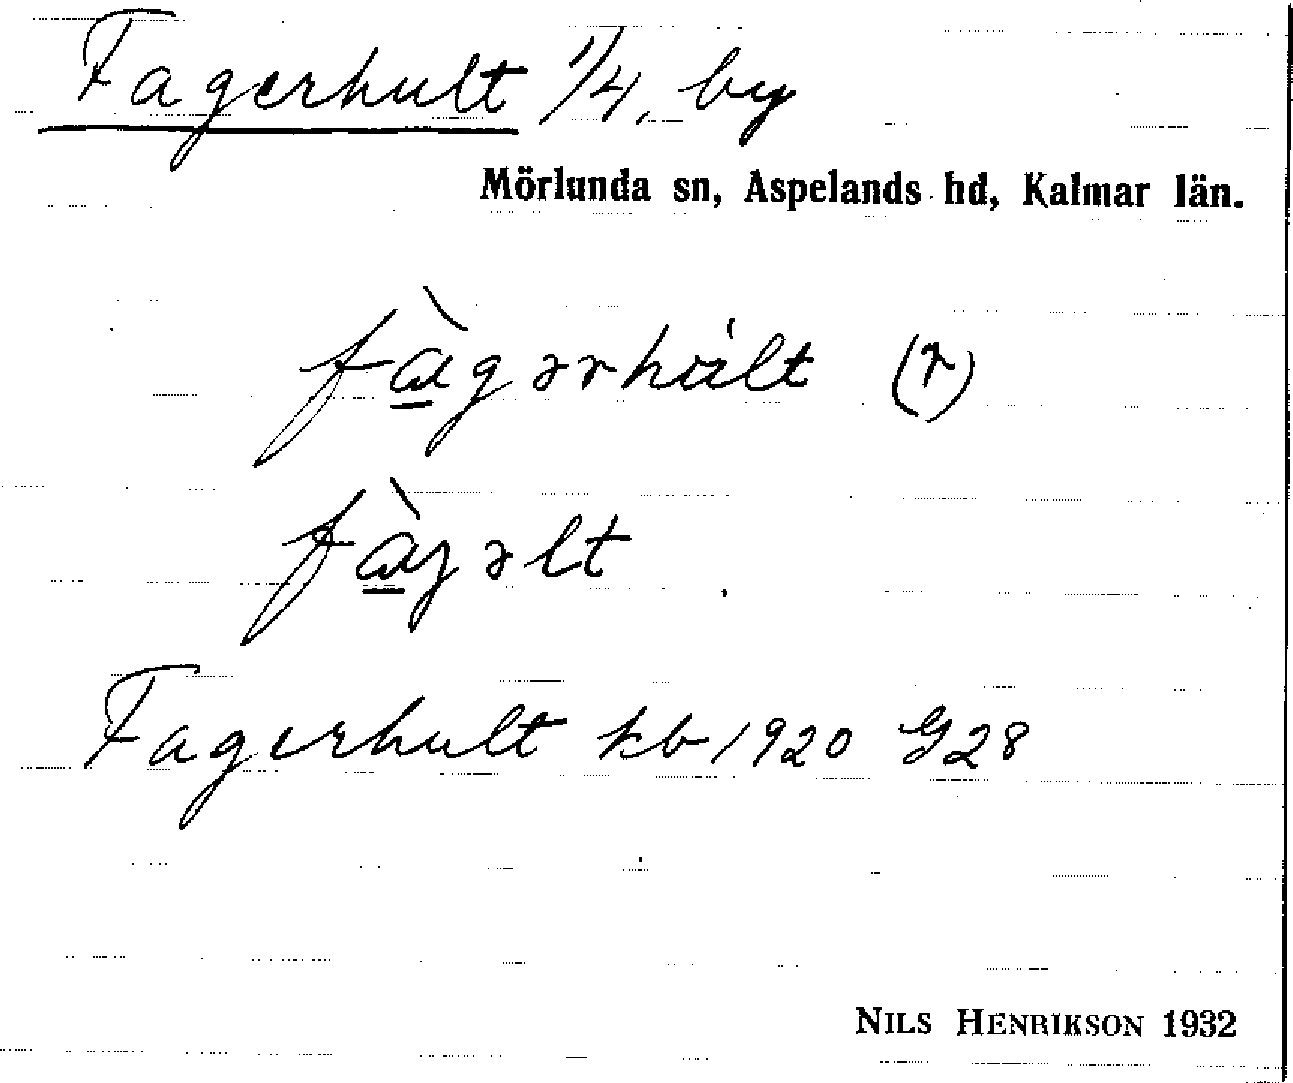 Fagerhult 1/4, by
Mörlunda sn, Aspelands hd, Kalmar län.
fàgərhúlt (r)
fàgəlt
Fagerhult kb 1920 G28
NILS HENRIKSON 1932